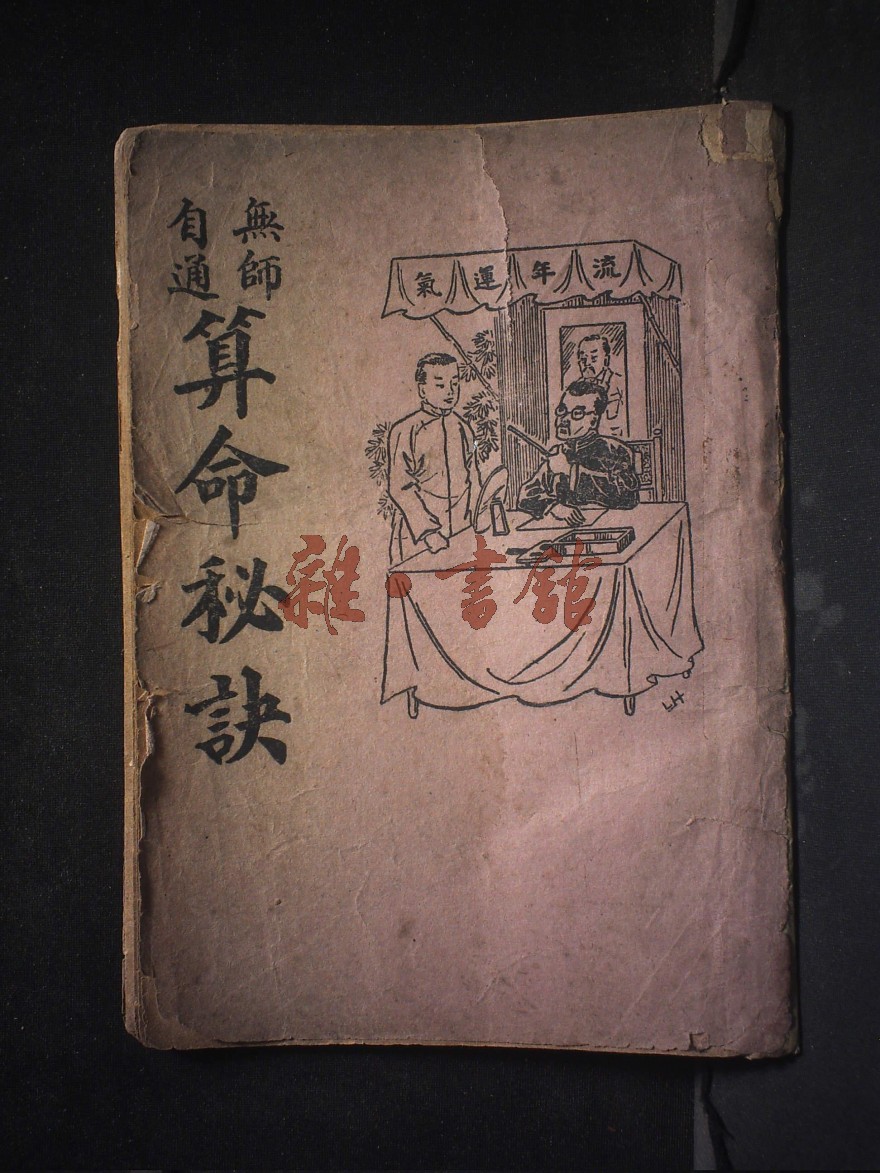 無師
自通
算命秘訣
流年運氣
雜·書館